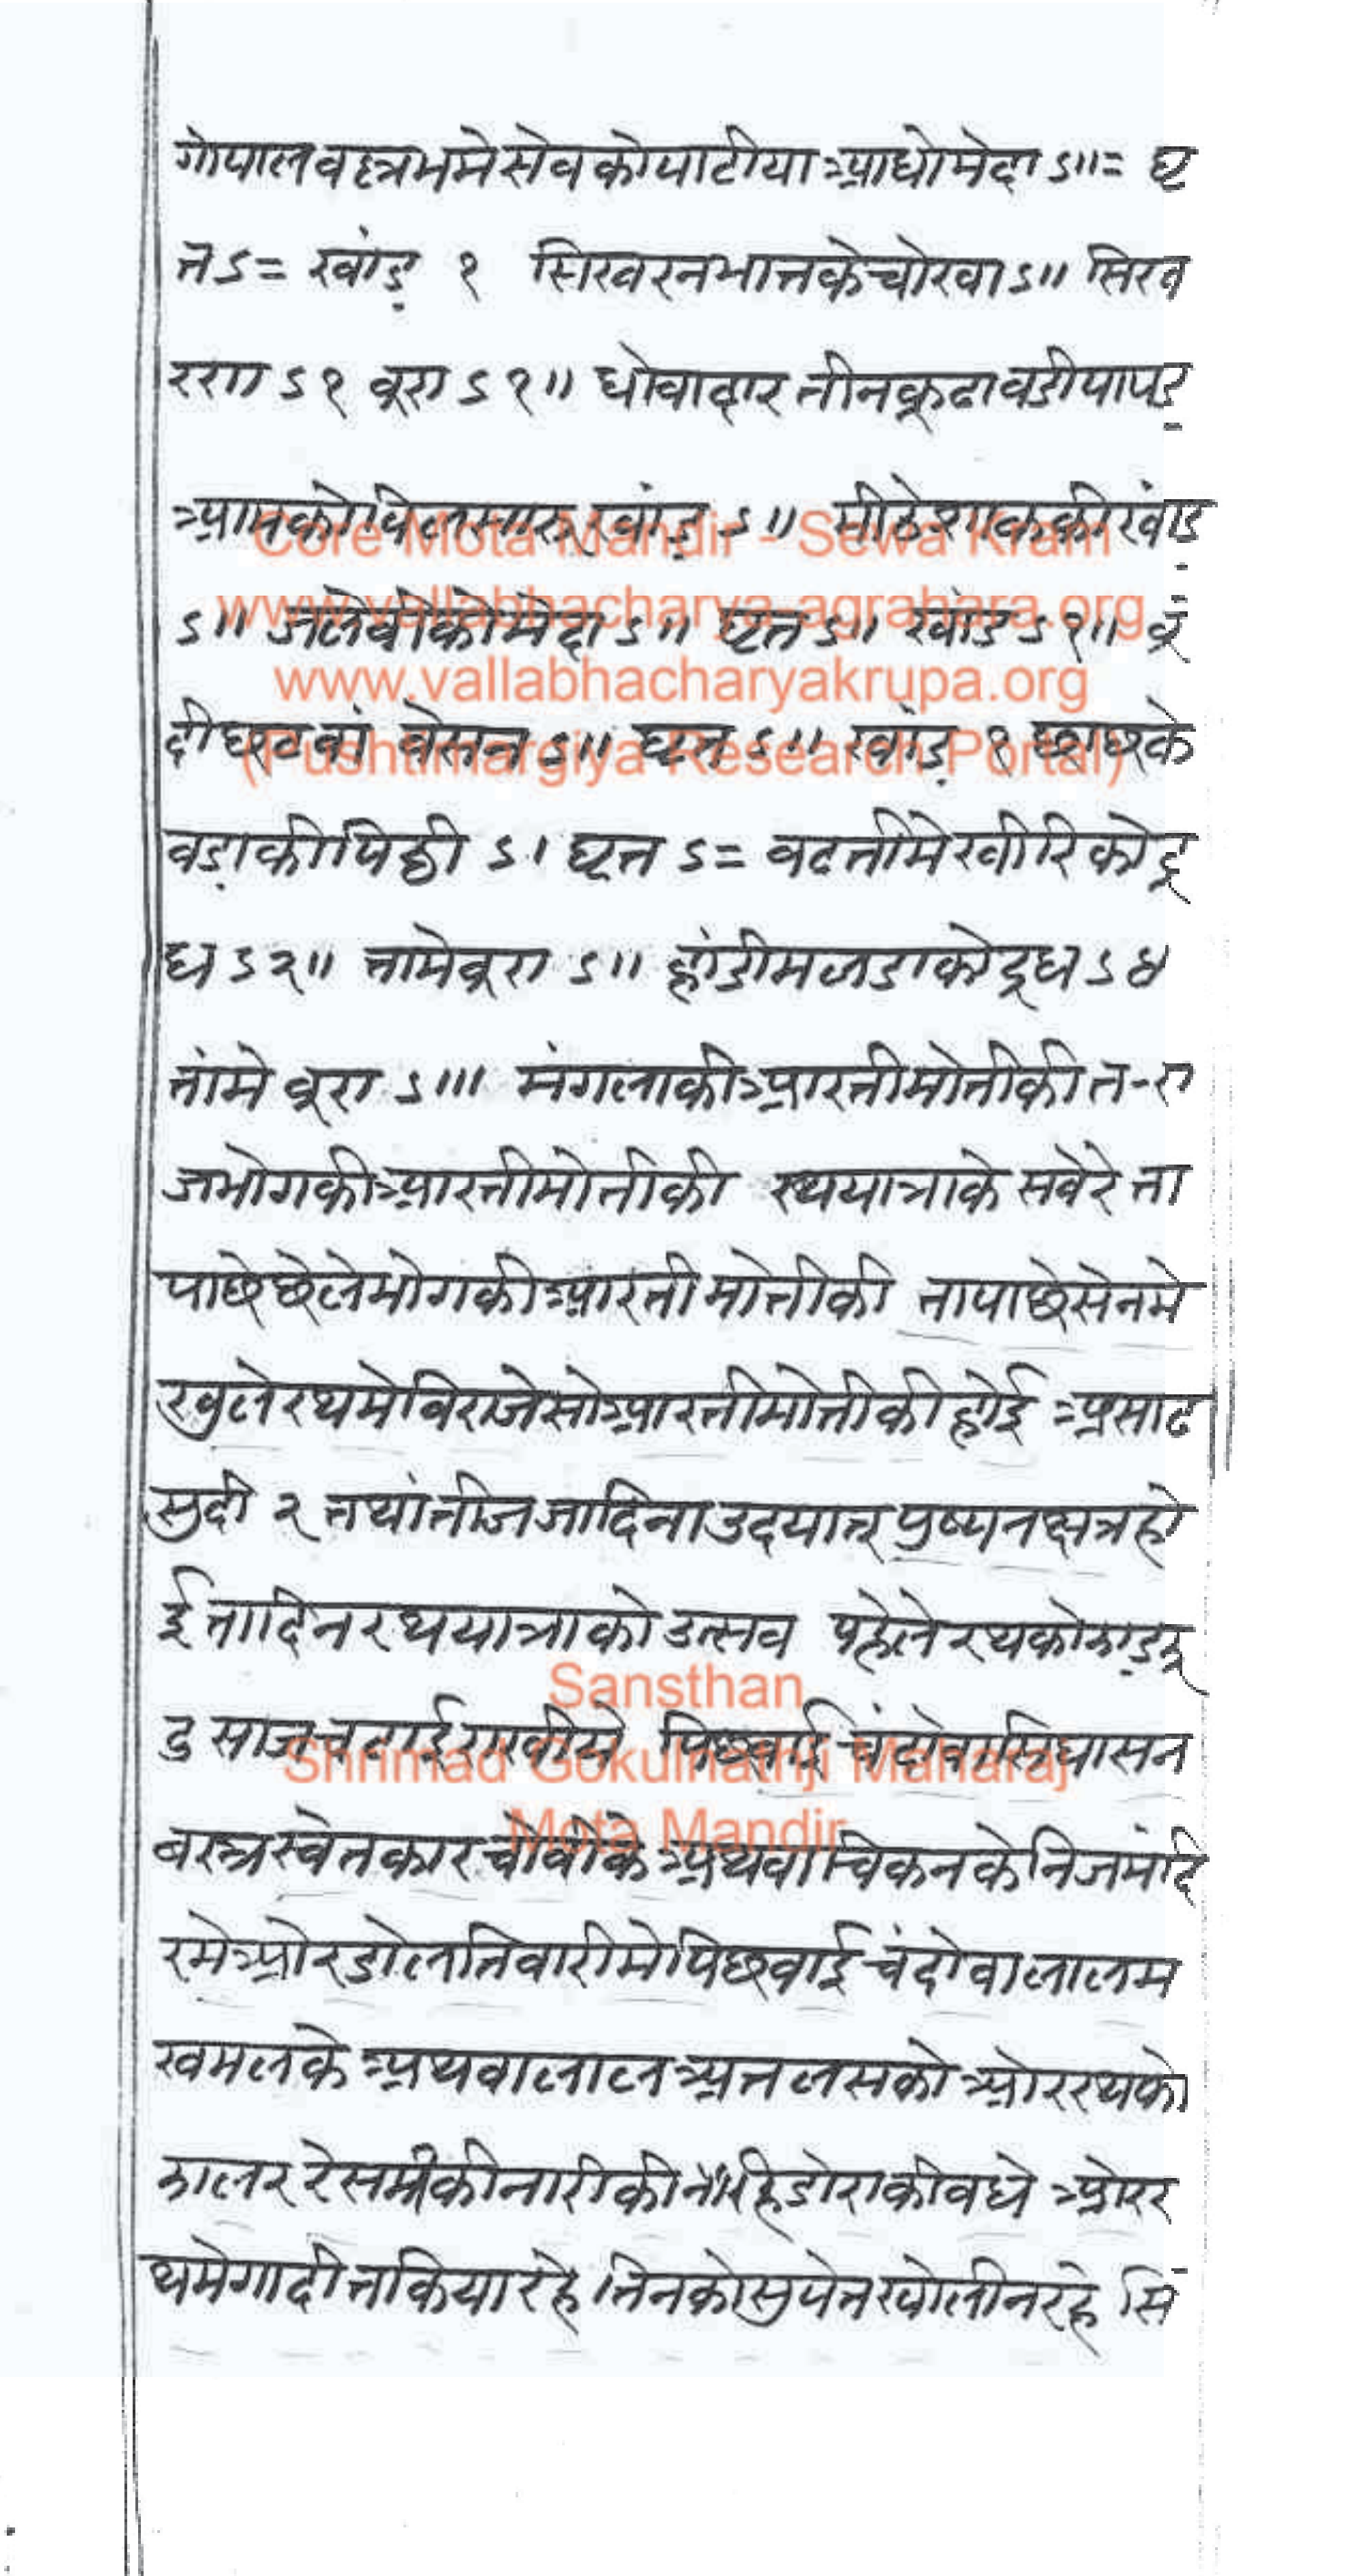 गोपालवल्लभमे सेव को पाटीया आधो मेदा ऽ॥= घृ
त ऽ= खांड़ १ सिखरन भात के चोखा ऽ॥ सिख
ररा ऽ१ बूरा ऽ१॥ धोवादार तीनकूढा वडी पापड़
आमको विलसारु खांड़ ऽ॥ मीठेशाककी खांड़
ऽ॥ जलेबीको मेदा ऽ॥ घृत ऽ॥ खांड ऽ१॥ बूं
दी छूटवां बेसन ऽ॥ घृत ऽ॥ खांड़ १ छाछके
वड़ाकी पिठ्ठी ऽ। घृत ऽ= वटतीमे खीरि को दू
ध ऽ२॥ तामे बूरा ऽ॥ हांडी मलडाको दूध ऽ४
तांमे बूरा ऽ॥। मंगलाकी आरती मोतीकी त-रा
जभोगकी आरती मोतीकी रथयात्राके सवेरे ता
पाछे छेले भोगकी आरती मोतीकी तापाछे सेनमे
खुले रथमे विराजे सो आरती मोतीकी होई असाढ
सुदी २ तथां तीज जादिना उदयात पुष्यनक्षत्र हो
ई तादिन रथयात्राको उत्सव पहेले रथको झाड़झू
ड साज चढाई राखीये पिछवाई चंदोवा सिंघासन
बस्त्र स्वेत कारचोवीके अथवा चिकनके निजमंदि
रमे ओर डोलतिवारीमे पिछवाई चंदोवा लाल म
खमलके अथवा लाल अतलसको ओर रथको
झालर रेसम की नारी की डोराकी बधे ओर र
थमे गादी तकिया रहे तिनको सुपेत खोली न रहे सिं